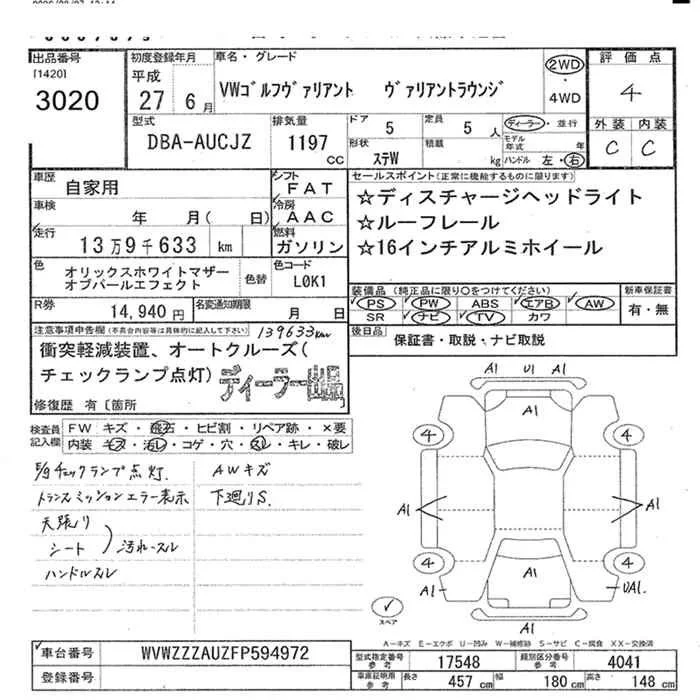 出品番号
[1420]
3020
初度登録年月
平成
27 6月
車名・グレード
VWゴルフヴァリアント ヴァリアントラウンジ
2WD
・
4WD
評価点
4
外装 内装
C C
型式
DBA-AUCJZ
排気量
1197
CC
ドア
5
定員
5 人
ディーラー・並行
モデル年式 年
形状
ステW
積載
kg
ハンドル 左・右
車歴
自家用
シフト
FAT
車検
年 月( 日)
冷房
AAC
走行
13万9千633 km
燃料
ガソリン
色
オリックスホワイトマザー
オブパールエフェクト
色替
色コード
L0K1
R券
14,940円
名変通知期限
月 日
セールスポイント(正常に機能するものに限ります)
☆ディスチャージヘッドライト
☆ルーフレール
☆16インチアルミホイール
装備品 (純正品に限り○をつけてください)
PS PW ABS エアB AW
SR ナビ TV カワ
新車保証書
有・無
後日品
保証書・取説・ナビ取説
注意事項申告欄(不具合内容等は具体的に記入して下さい)
139633km
衝突軽減装置、オートクルーズ(
チェックランプ点灯)
ディーラー出品
修復歴 有〔箇所 〕
検査員
記入欄
FW キズ・飛石・ヒビ割・リペア跡・×要
内装 キズ・汚レ・コゲ・穴・スレ・キレ・破レ
E/gチェックランプ点灯.
トランスミッションエラー表示
天張り
シート
汚れ・スレ
ハンドルスレ
AWキズ
下廻りS.
A1 U1 A1
A1
4 4
A1 A1
4 4
A1
A1 UA1.
A1
スペア
A−キズ E−エクボ U−凹み W−補修跡 S−サビ C−腐食 XX−交換済
車台番号
WVWZZZAUZFP594972
登録番号
型式指定番号
参考
17548
類別区分番号
参考
4041
車庫証明用
参考
長さ 457 cm
幅 180 cm
高さ 148 cm